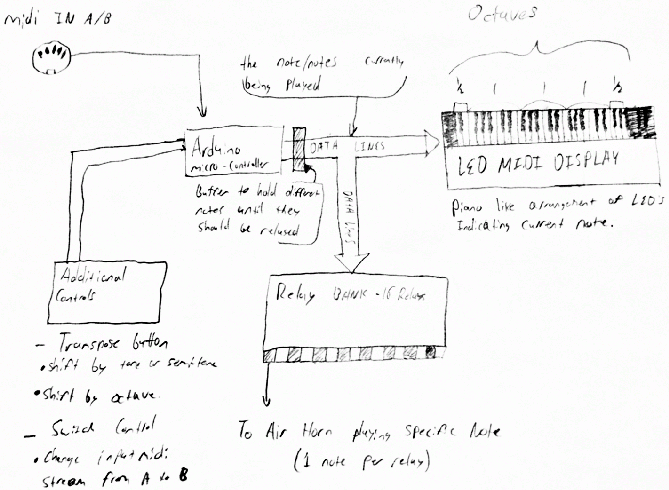 midi IN A/B
Octaves
the note/notes currently
being played
½ 1 1 1 ½
Arduino
micro-controller
DATA LINES
LED MIDI DISPLAY
Buffer to hold different
notes until they
should be relased
DATA LINES
Piano like arrangement of LED's
Indicating current note.
Additional
Controls
Relay BANK - 16 Relays
- Transpose button
• shift by tone or semitone
• shift by octave.
- Switch Control
• Change input midi
stream from A to B
To Air Horn playing specific Note
(1 note per relay)